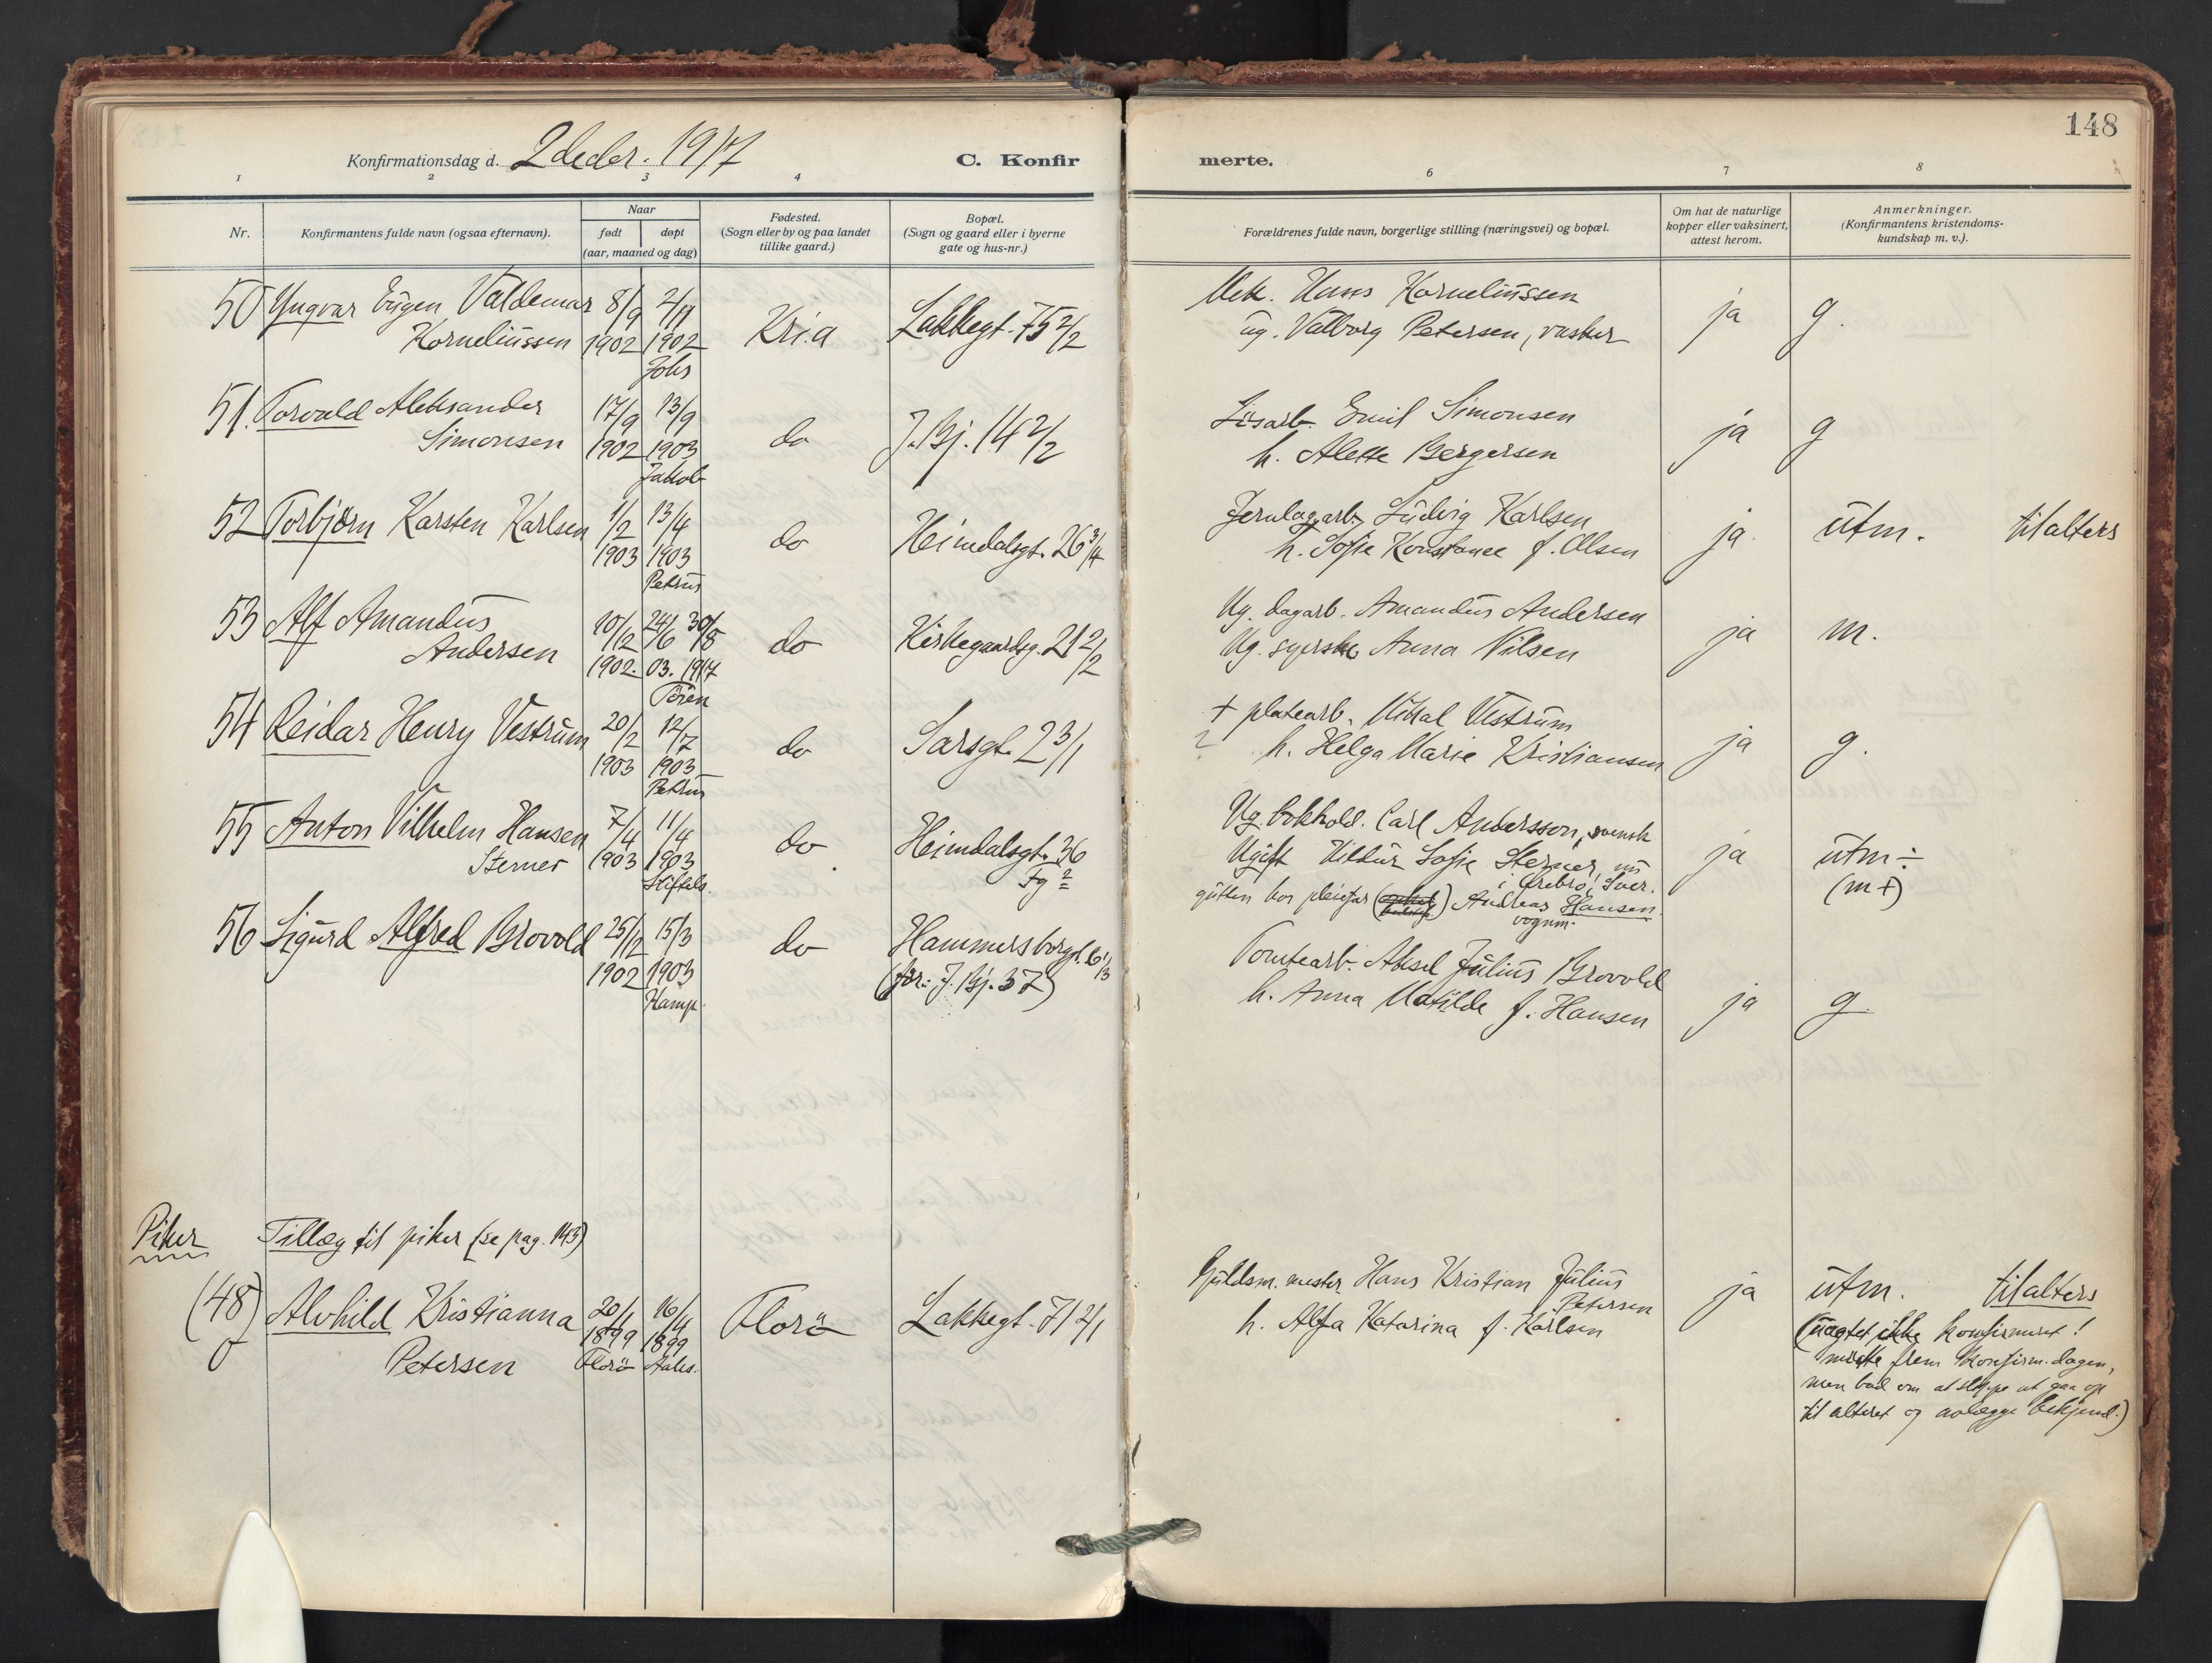 148
Konfirmationsdag d. 2 decbr. 1917
C. Konfirmerte.
1 2 3 4 6 7 8
Nr.
Konfirmantens fulde navn (ogsaa efternavn).
Naar
født døpt
(aar, maaned og dag)
Fødested.
(Sogn eller by og paa landet
tillike gaard.)
Bopæl.
(Sogn og gaard eller i byerne
gate og hus-nr.)
Forældrenes fulde navn, borgerlige stilling (næringsvei) og bopæl.
Om hat de naturlige
kopper eller vaksinert,
attest herom.
Anmerkninger.
(Konfirmantens kristendoms-
kundskap m. v.).
50 Yngvar Eugen Valdemar 8/9 2/11 Kri.a Lakkegt. 75 2/2 Mek. Hans Korneliussen ja g.
Korneliussen 1902 1902 ug. Valborg Petersen, vasker
Johs
51. Torvald Aleksander 17/9 13/9 do J. Bj. 14 2/2 Emil Simonsen ja g
Simonsen 1902 1903 h. Alette Bergersen
Jakob
52 Torbjørn Karsten Karlsen 1/2 13/4 do Heimdalsgt. 26 3/4 Jernlagarb. Ludvig Karlsen ja. utm. til alters
1903 1903 h. Sofie Konstance f. Olsen
Petrus
53 Alf Amandus 10/12 24/6 30/8 do Kirkegaardsg. 21 2/2 Ug. dagarb. Amandus Andersen ja m.
Andersen 1902. 03. 1917 Ug. syerske Anna Nilsen
54 Reidar Henry Vestrum 20/2 12/7 do Sarsgt. 2 3/1 + platearb. Mikal Vestrum ja g.
1903 1903 h. Helga Marie Kristiansen
Petrus
55 Anton Vilhelm Hansen 7/4 11/4 do Heimdalsgt. 36 Ug. bokhold. Carl Andersson, svensk ja utm ÷
Sterner 1903 1903 Fg 2 Ugift Sofie Sterner, nu (m +)
Stiftels. i Ørebro, Sver.
gutten hos pleiefar Andreas Hansen
vognm.
56 Sigurd Alfred Brovold 25/12 15/3 do Hammersborggt. 6 1/3 Tomtearb. Aksel Julius Brovold ja g.
1902 1903 (før: J. Bj. 37) h. Anna Matilde f. Hansen
Kamp.
Piker Tillæg til piker (se pag. 143)
(48) Alvhild Kristianna 20/1 16/4 Florö Lakkegt. 71 2/1 Guldsm. mester Hans Kristian Julius Petersen ja utm. til alters
Petersen 1899 1899 h. Alfa Katarina f. Karlsen
Florö Aales.
(uagtet ikke konfirmeret!
møtte frem konfirm. dagen,
men bad om at slippe at gaa op
til alteret og avlægge bekjend.)